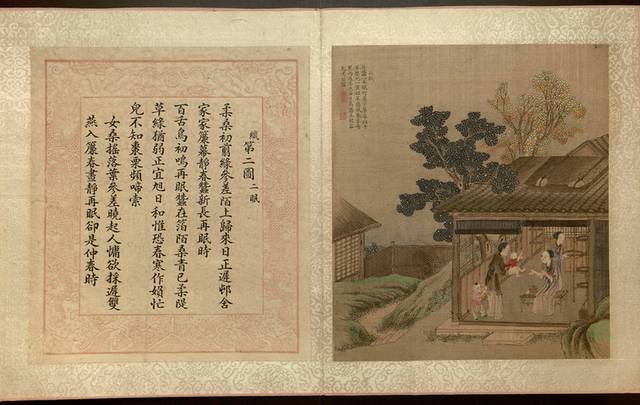 織第二圖 二眠
柔桑初剪綠參差陌上歸來日正遲邨舍
家家簾幕靜春蠶新長再眠時
百舌鳥初鳴再眠蠶在箔陌桑青已柔堤
草綠猶弱正宜旭日和惟恐春寒作媍忙
兒不知棗栗頻啼索
女桑搖落葉參差曉起人慵欲採遲雙
燕入簾春晝靜再眠卻是仲春時